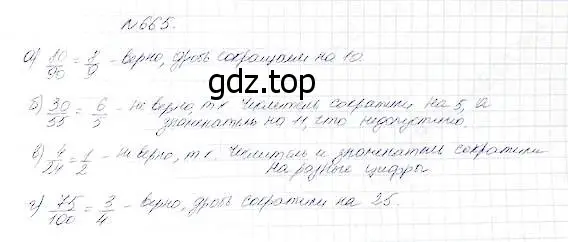 №665.
а) 10/90 = 1/9 - верно, дробь сокращали на 10.
gdz.top
б) 30/55 = 6/5 - не верно, т.к. числитель сократили на 5, а
знаменатель на 11, что недопустимо.
в) 4/24 = 1/2 - не верно, т.к. числитель и знаменатель сократили
на разные цифры
г) 75/100 = 3/4 - верно, дробь сократили на 25.